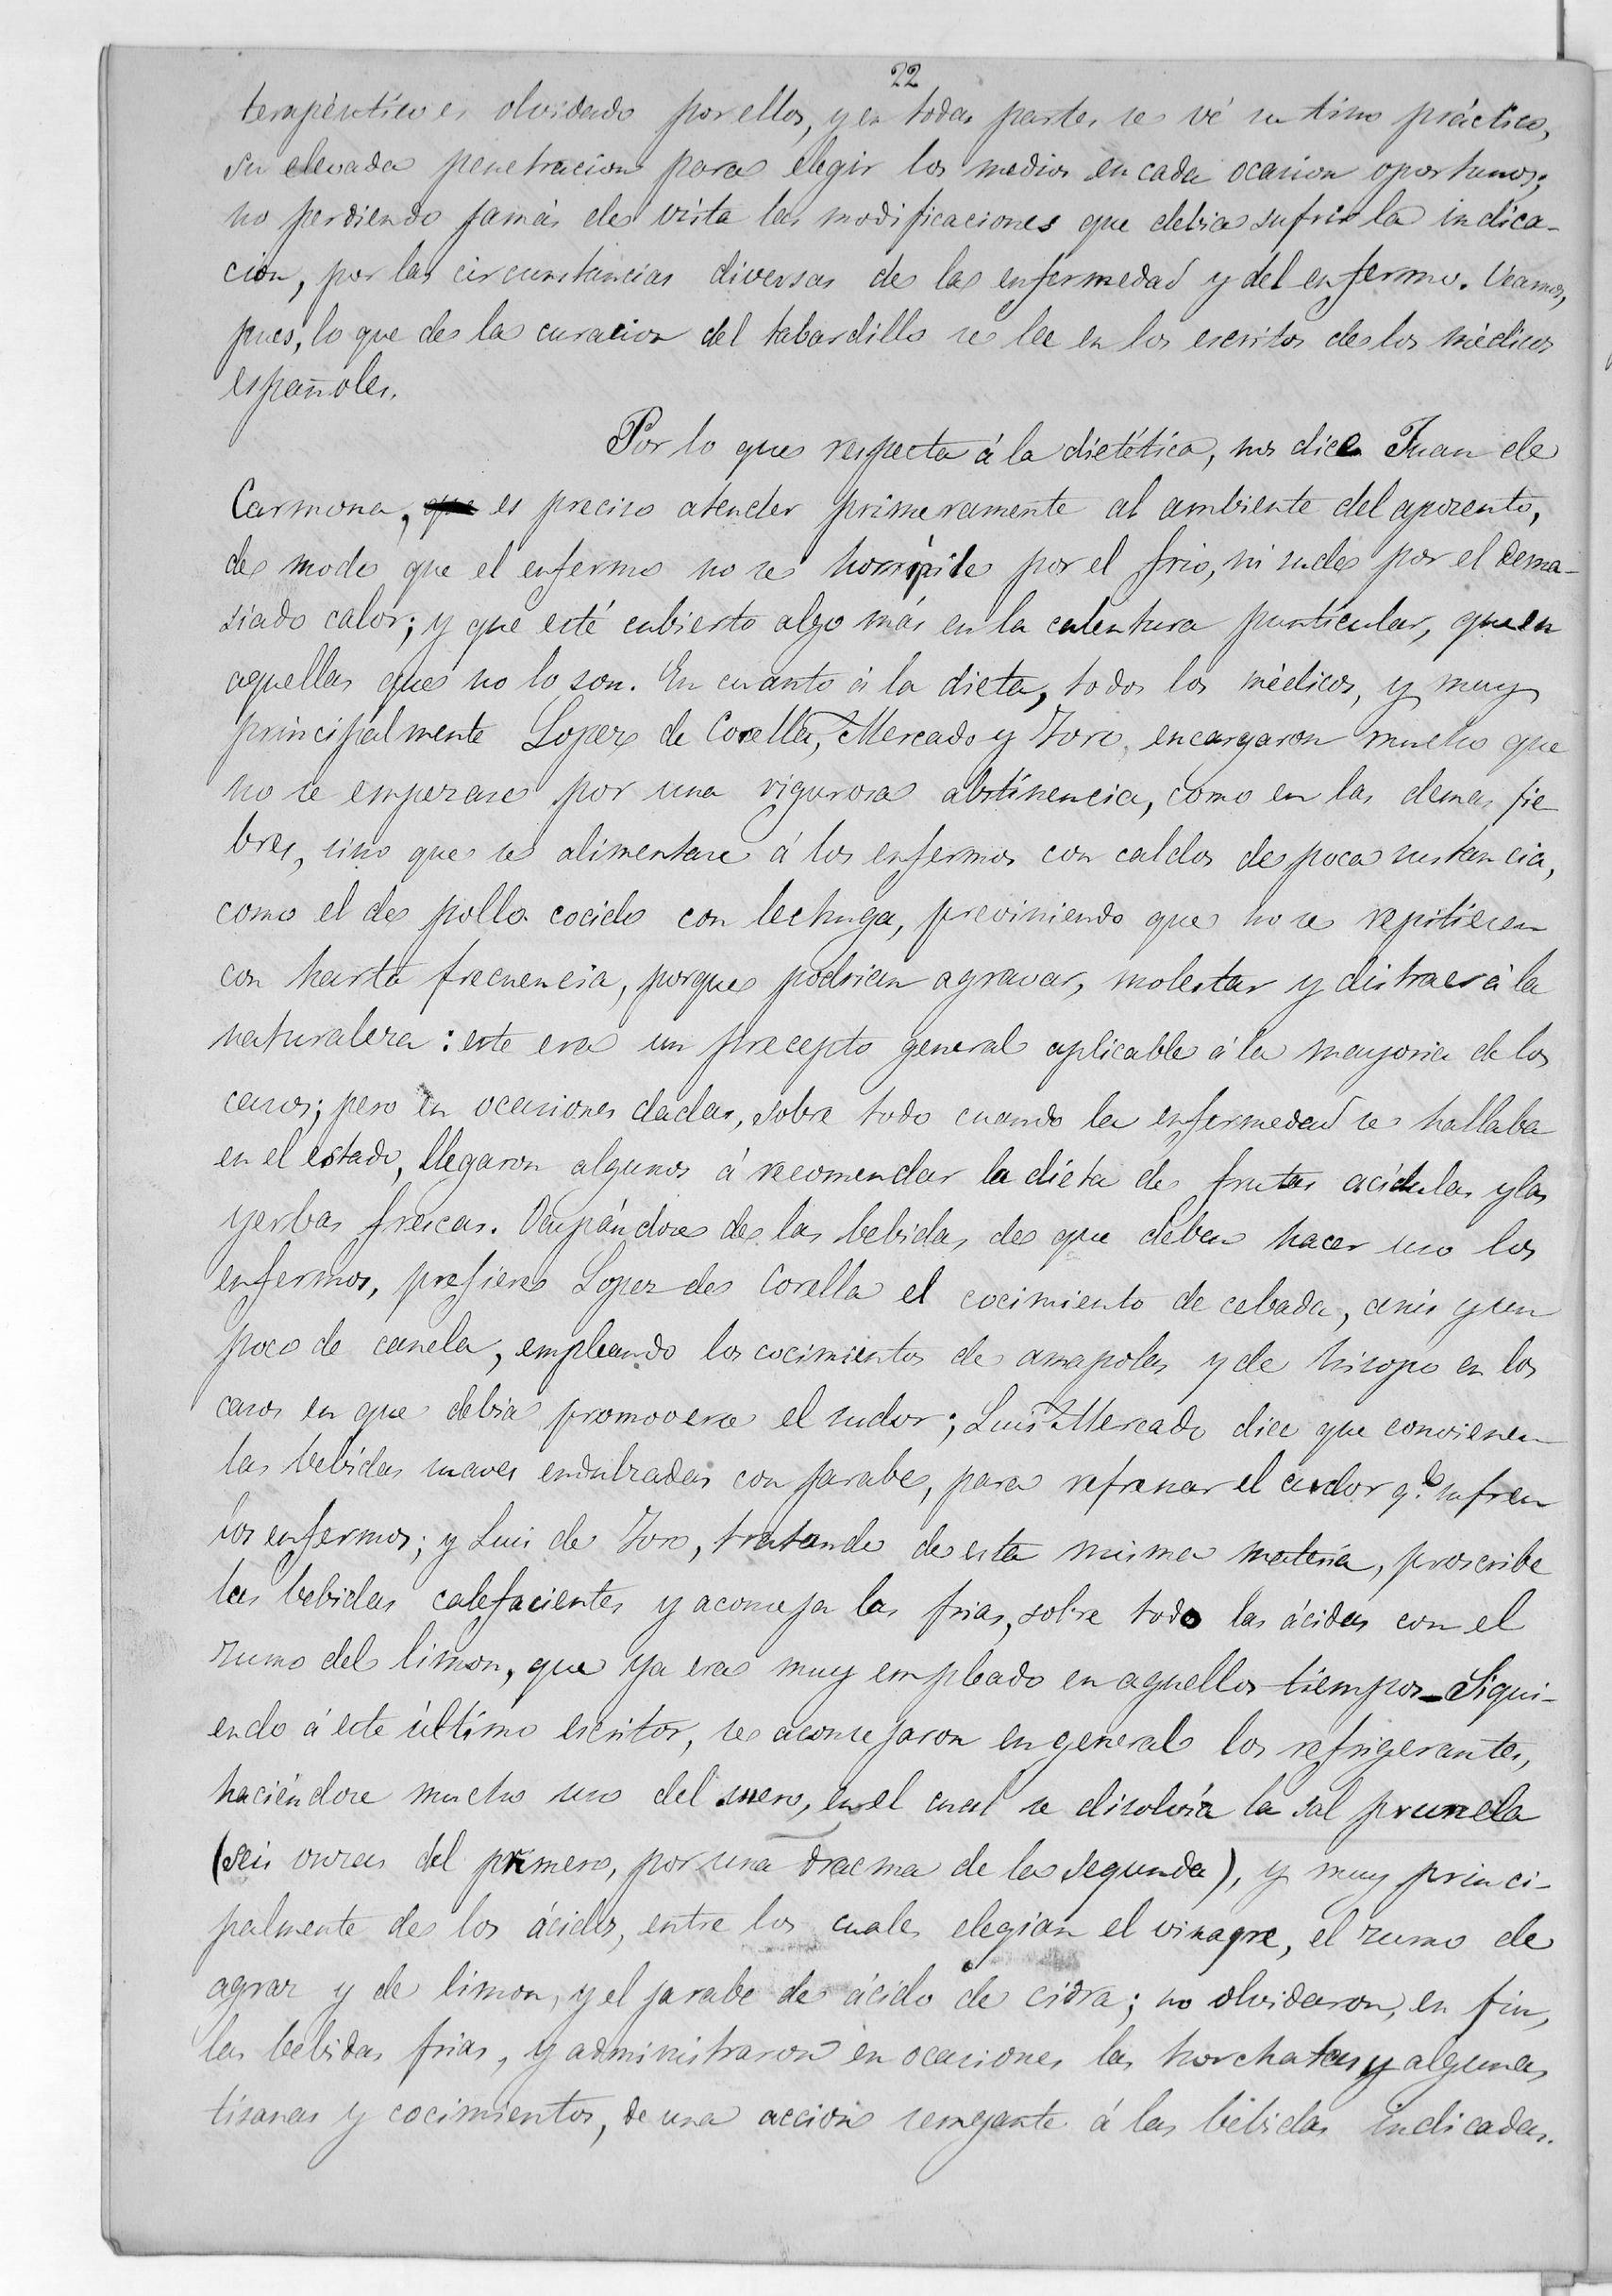 22
terapéutico es olvidado por ellos, y en todas partes se vé su tino práctico,
su elevada penetracion para elegir los medios en cada ocasion oportunos;
no perdiendo jamás de vista las modificaciones que debia sufrir la indica-
cion, por las circunstancias diversas de la enfermedad y del enfermo. Veamos,
pues, lo que de la curacion del tabardillo se lee en los escritos de los médicos
españoles.
Por lo que respecta á la dietética, nos dice Juan de
Carmona, que es preciso atender primeramente al ambiente del aposento,
de modo que el enfermo no se horripile por el frio, ni sude por el dema-
siado calor; y que esté cubierto algo más en la calentura punticular, que en
aquellas que no lo son. En cuanto á la dieta, todos los médicos, y muy
principalmente Lopez de Corella, Mercado y Toro, encargaron mucho que
no se empezase por una vigurosa abstinencia, como en las demas fie-
bres, sino que se alimentase á los enfermos con caldos de poca sustancia,
como el de pollo cocido con lechuga, previniendo que no se repitiesen
con harta frecuencia, porque podrian agravar, molestar y distraer á la
naturaleza: este era un precepto general aplicable á la mayoria de los
casos; pero en ocasiones dadas, sobre todo cuando la enfermedad se hallaba
en el estado, llegaron algunos á recomendar la dieta de frutas acídulas y las
yerbas frescas. Ocupándose de las bebidas de que deben hacer uso los
enfermos, prefiere Lopez de Corella el cocimiento de cebada, anis y un
poco de canela, empleando los cocimientos de amapolas y de hisopo en los
casos en que debia promoverse el sudor; Luis Mercado dice que convienen
las bebidas suaves endulzadas con jarabe, para refrenar el ardor q.e sufren
los enfermos; y Luis de Toro, tratando de esta misma materia, proscribe
las bebidas calefacientes y aconseja las frias, sobre todo las ácidas con el
zumo del limon, que ya era muy empleado en aquellos tiempos_Sigui-
endo á este último escritor, se aconsejaron en general los refrigerantes,
haciéndose mucho uso del suero, en el cual se disolvia la sal prunela
(seis onzas del primero, por una dracma de la segunda), y muy princi-
palmente de los ácidos, entre los cuales elegian el vinagre, el zumo de
agraz y de limon, y el jarabe de ácido de cidra; no olvidaron, en fin,
las bebidas frias, y administraron en ocasiones las horchatas y algunas
tisanas y cocimientos, de una accion semejante á las bebidas indicadas.